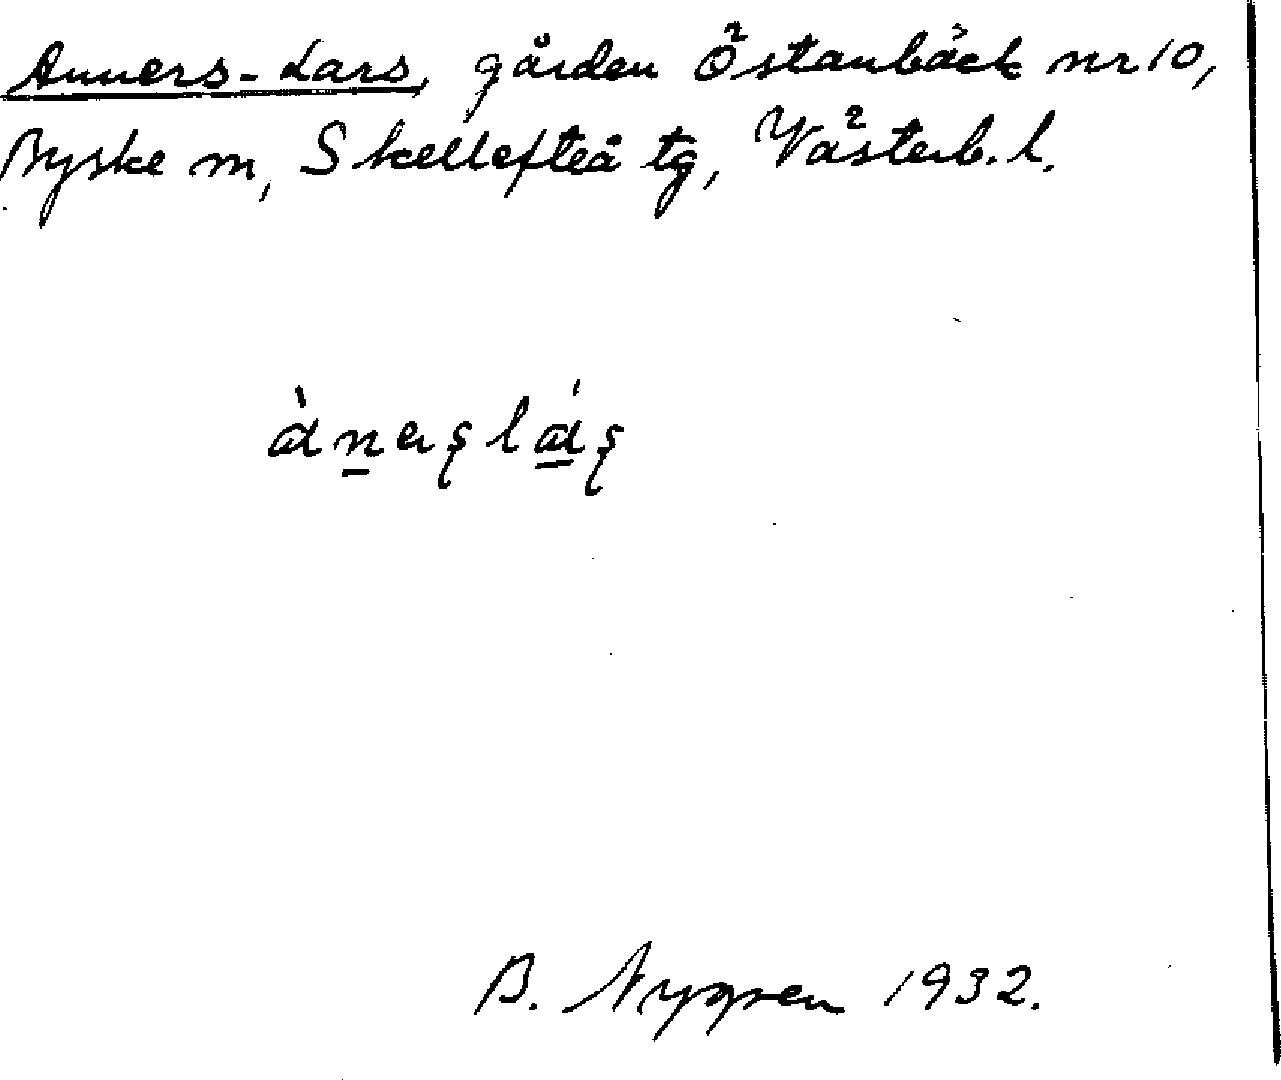 Anners-Lars, gården Östanbäck nr 10,
Byske sn, Skellefteå tg, Västerb. l.
àn̲ȧş lá̲ş
B. Nygren 1932.